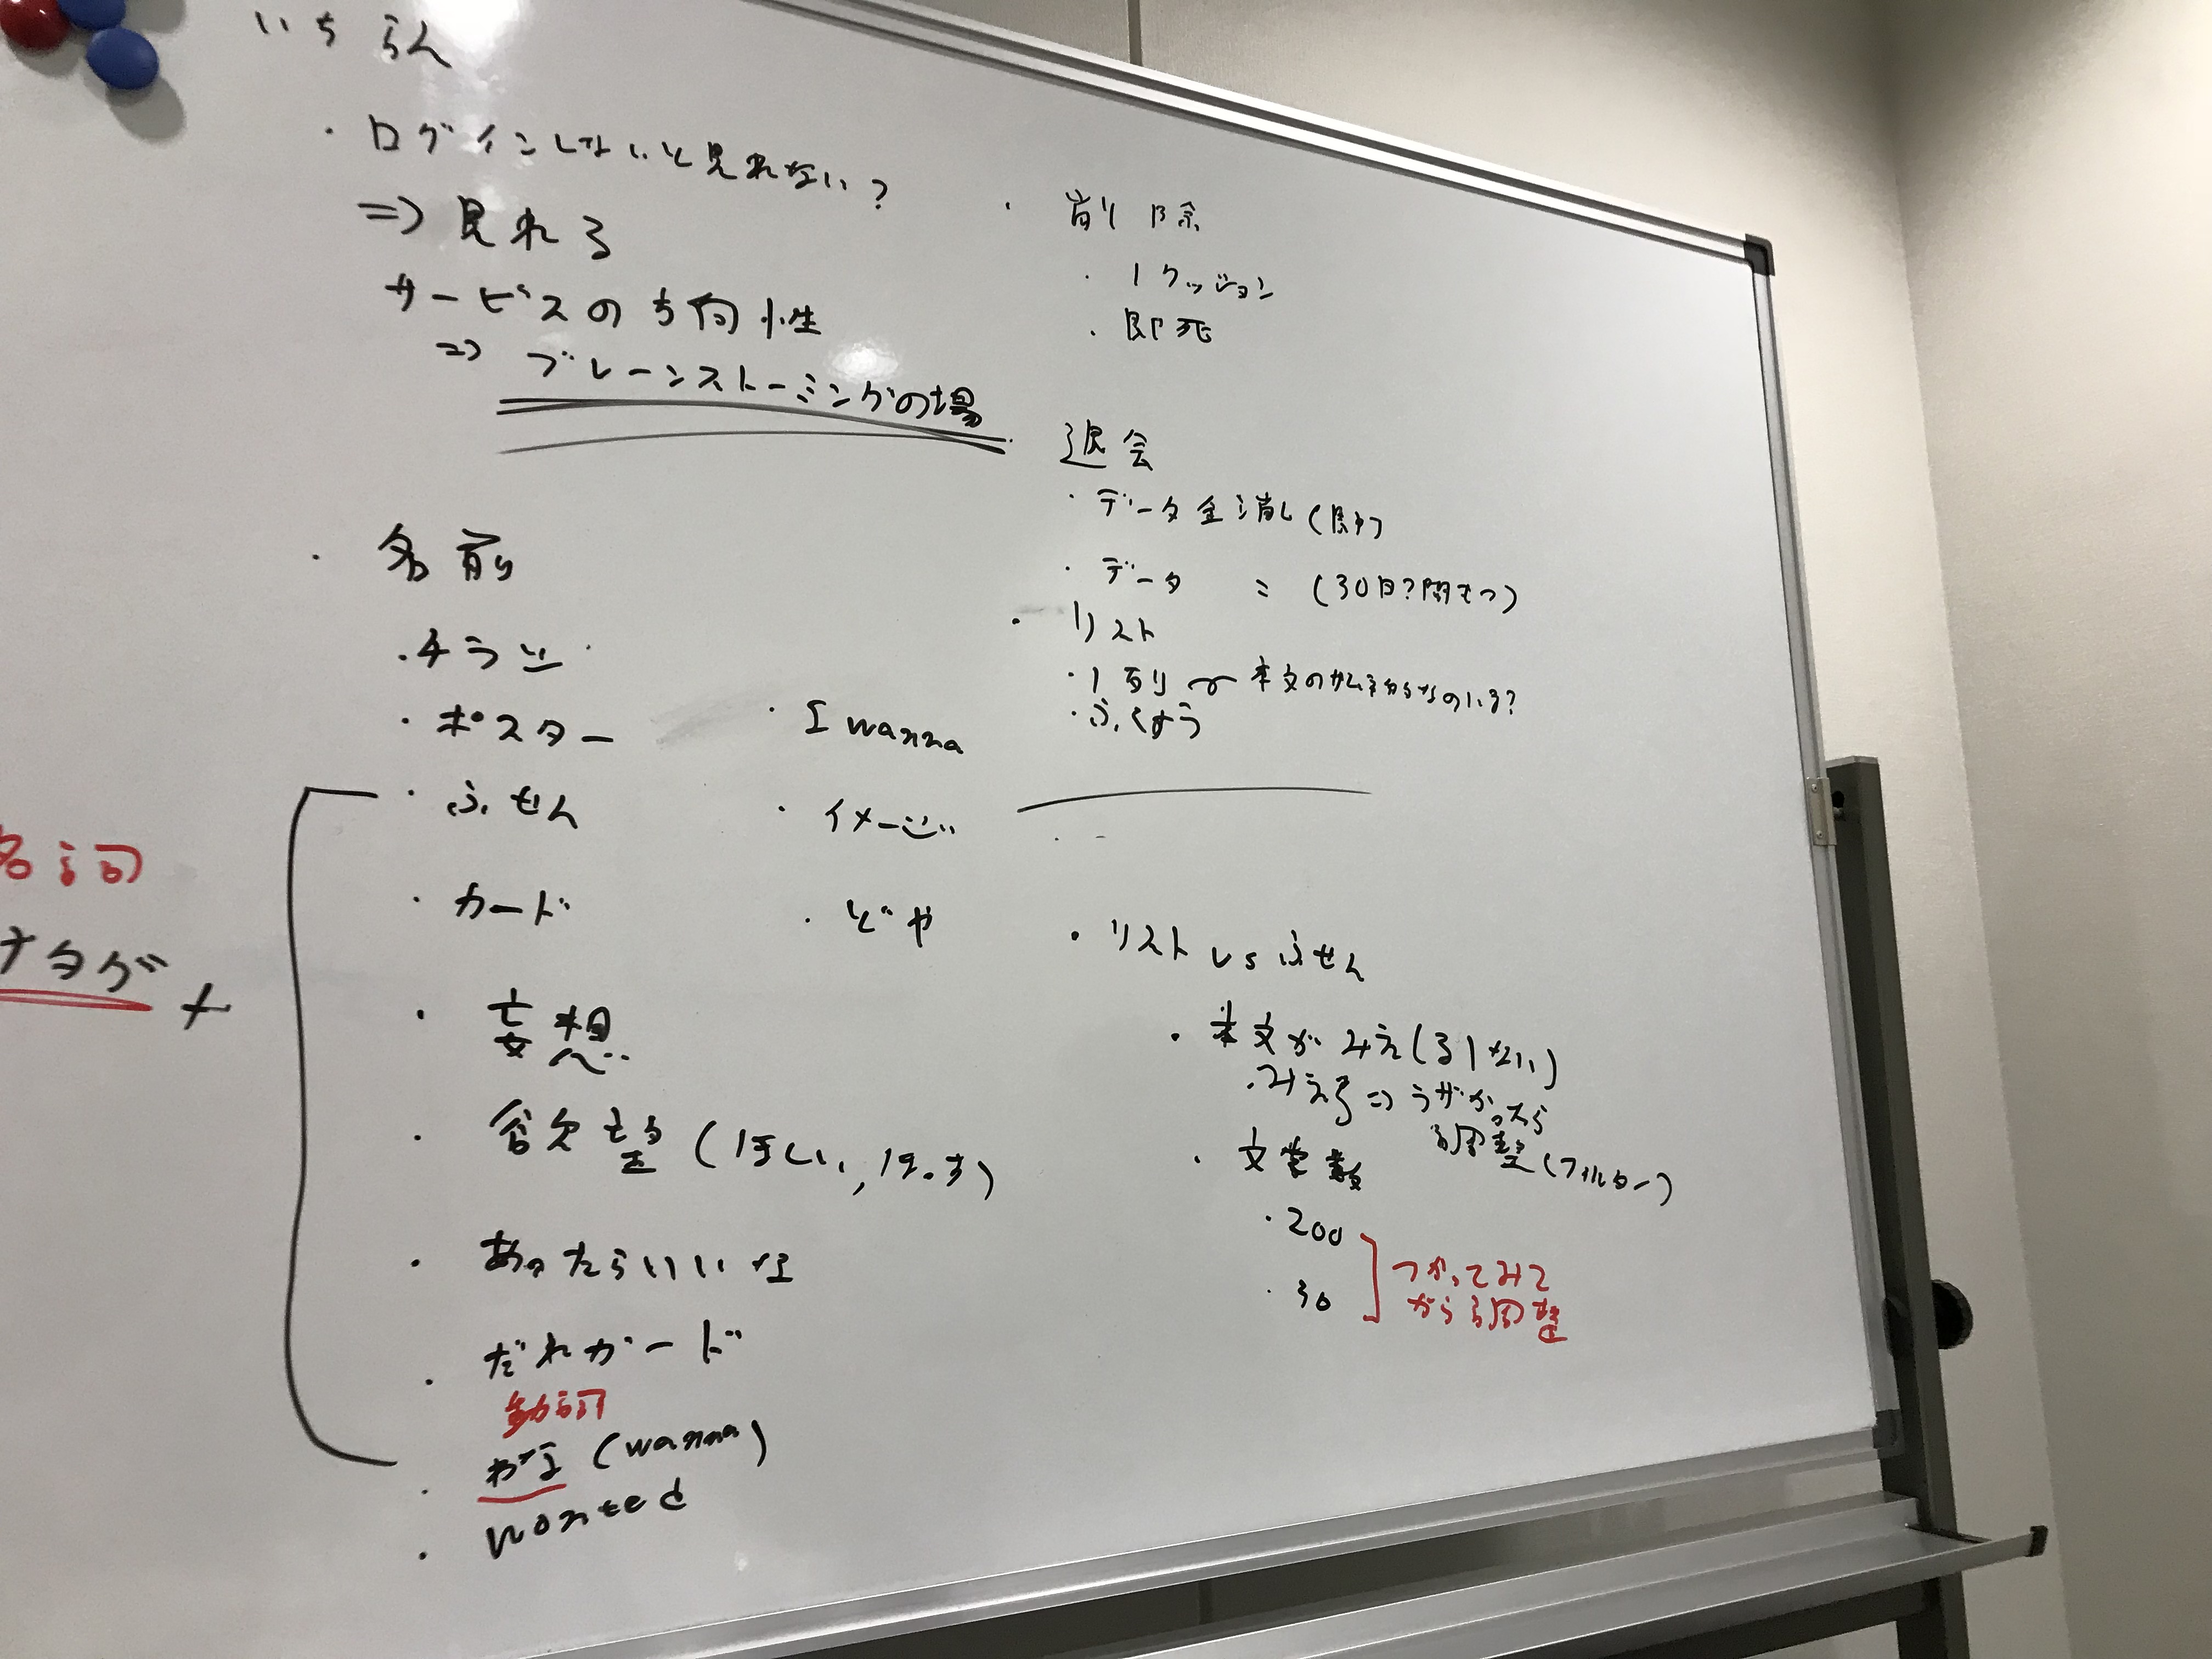 いちらん
・ログインしないと見れない?
⇒ 見れる
サービスの方向性
⇒ ブレーンストーミングの場
・名前
・チラシ
・ポスター
・ふせん
・カード
・妄想
・欲望 (ほしい,
・あったらいいな
・だれガード
動詞
・わな (wanna)
・wonted
名詞
ナタグ +
・I wanna
・イメージ
・どや
・削除
・1クッション
・即死
退会
・データ全消し (即)
・データ 〃 (30日?間もつ)
・リスト
・1列 本文の
・ふくすう
・リスト vs ふせん
・本文がみえ(る|ない)
・みえる ⇒ うザかったら
調整 (フィルター)
・文字数
・200
・30
つかってみて
から調整